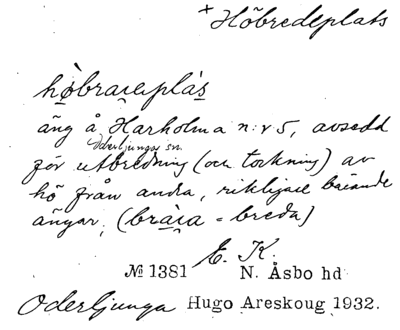 + Höbredeplats
hòbraɪepláʂ
äng å Harholma n:r 5, avsedd
Oderljunga sn.
för utbredning (och torkning) av
hö från andra, rikligare bärande
ängar. (bràɪa = breda)
E. K.
№ 1381 N. Åsbo hd
Oderljunga Hugo Areskoug 1932.